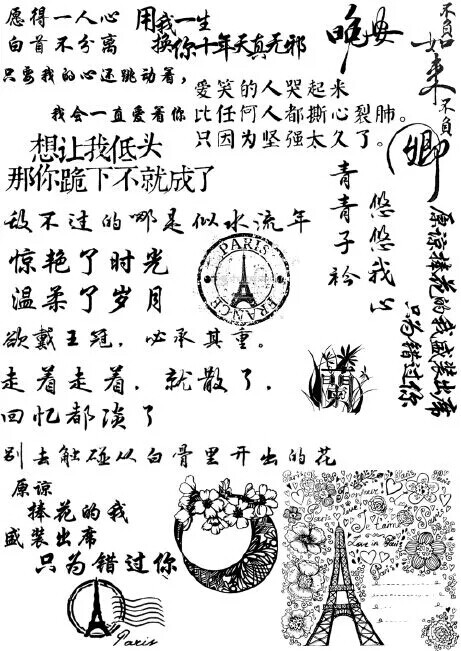 愿得一人心
白首不分离
用我一生
换你十年天真无邪
只要我的心还跳动着，
我会一直爱着你
爱笑的人哭起来
比任何人都撕心裂肺。
只因为坚强太久了。
晚安
不负如来不负卿
想让我低头
那你跪下不就成了
青青子衿
悠悠我心
原谅捧花的我盛装出席
只为错过你
敌不过的哪是似水流年
惊艳了时光
温柔了岁月
PARIS
FRANCE
欲戴王冠，必承其重。
走着走着，就散了，
回忆都淡了
别去触碰从白骨里开出的花
原谅
捧花的我
盛装出席
只为错过你
Paris
Paris
Je t'aime